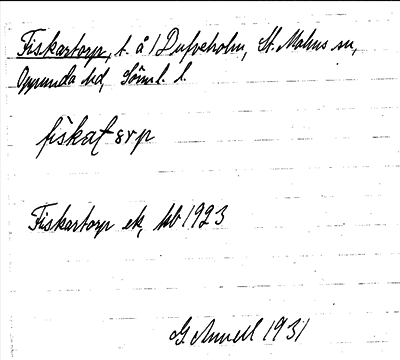 Fiskartorp, t. å / Dufveholm, St. Malms sn,
Oppunda hd, Söml. l.
fiskat̄ɛrp
Fiskartorp ek, kb 1923
G. Annell 1931